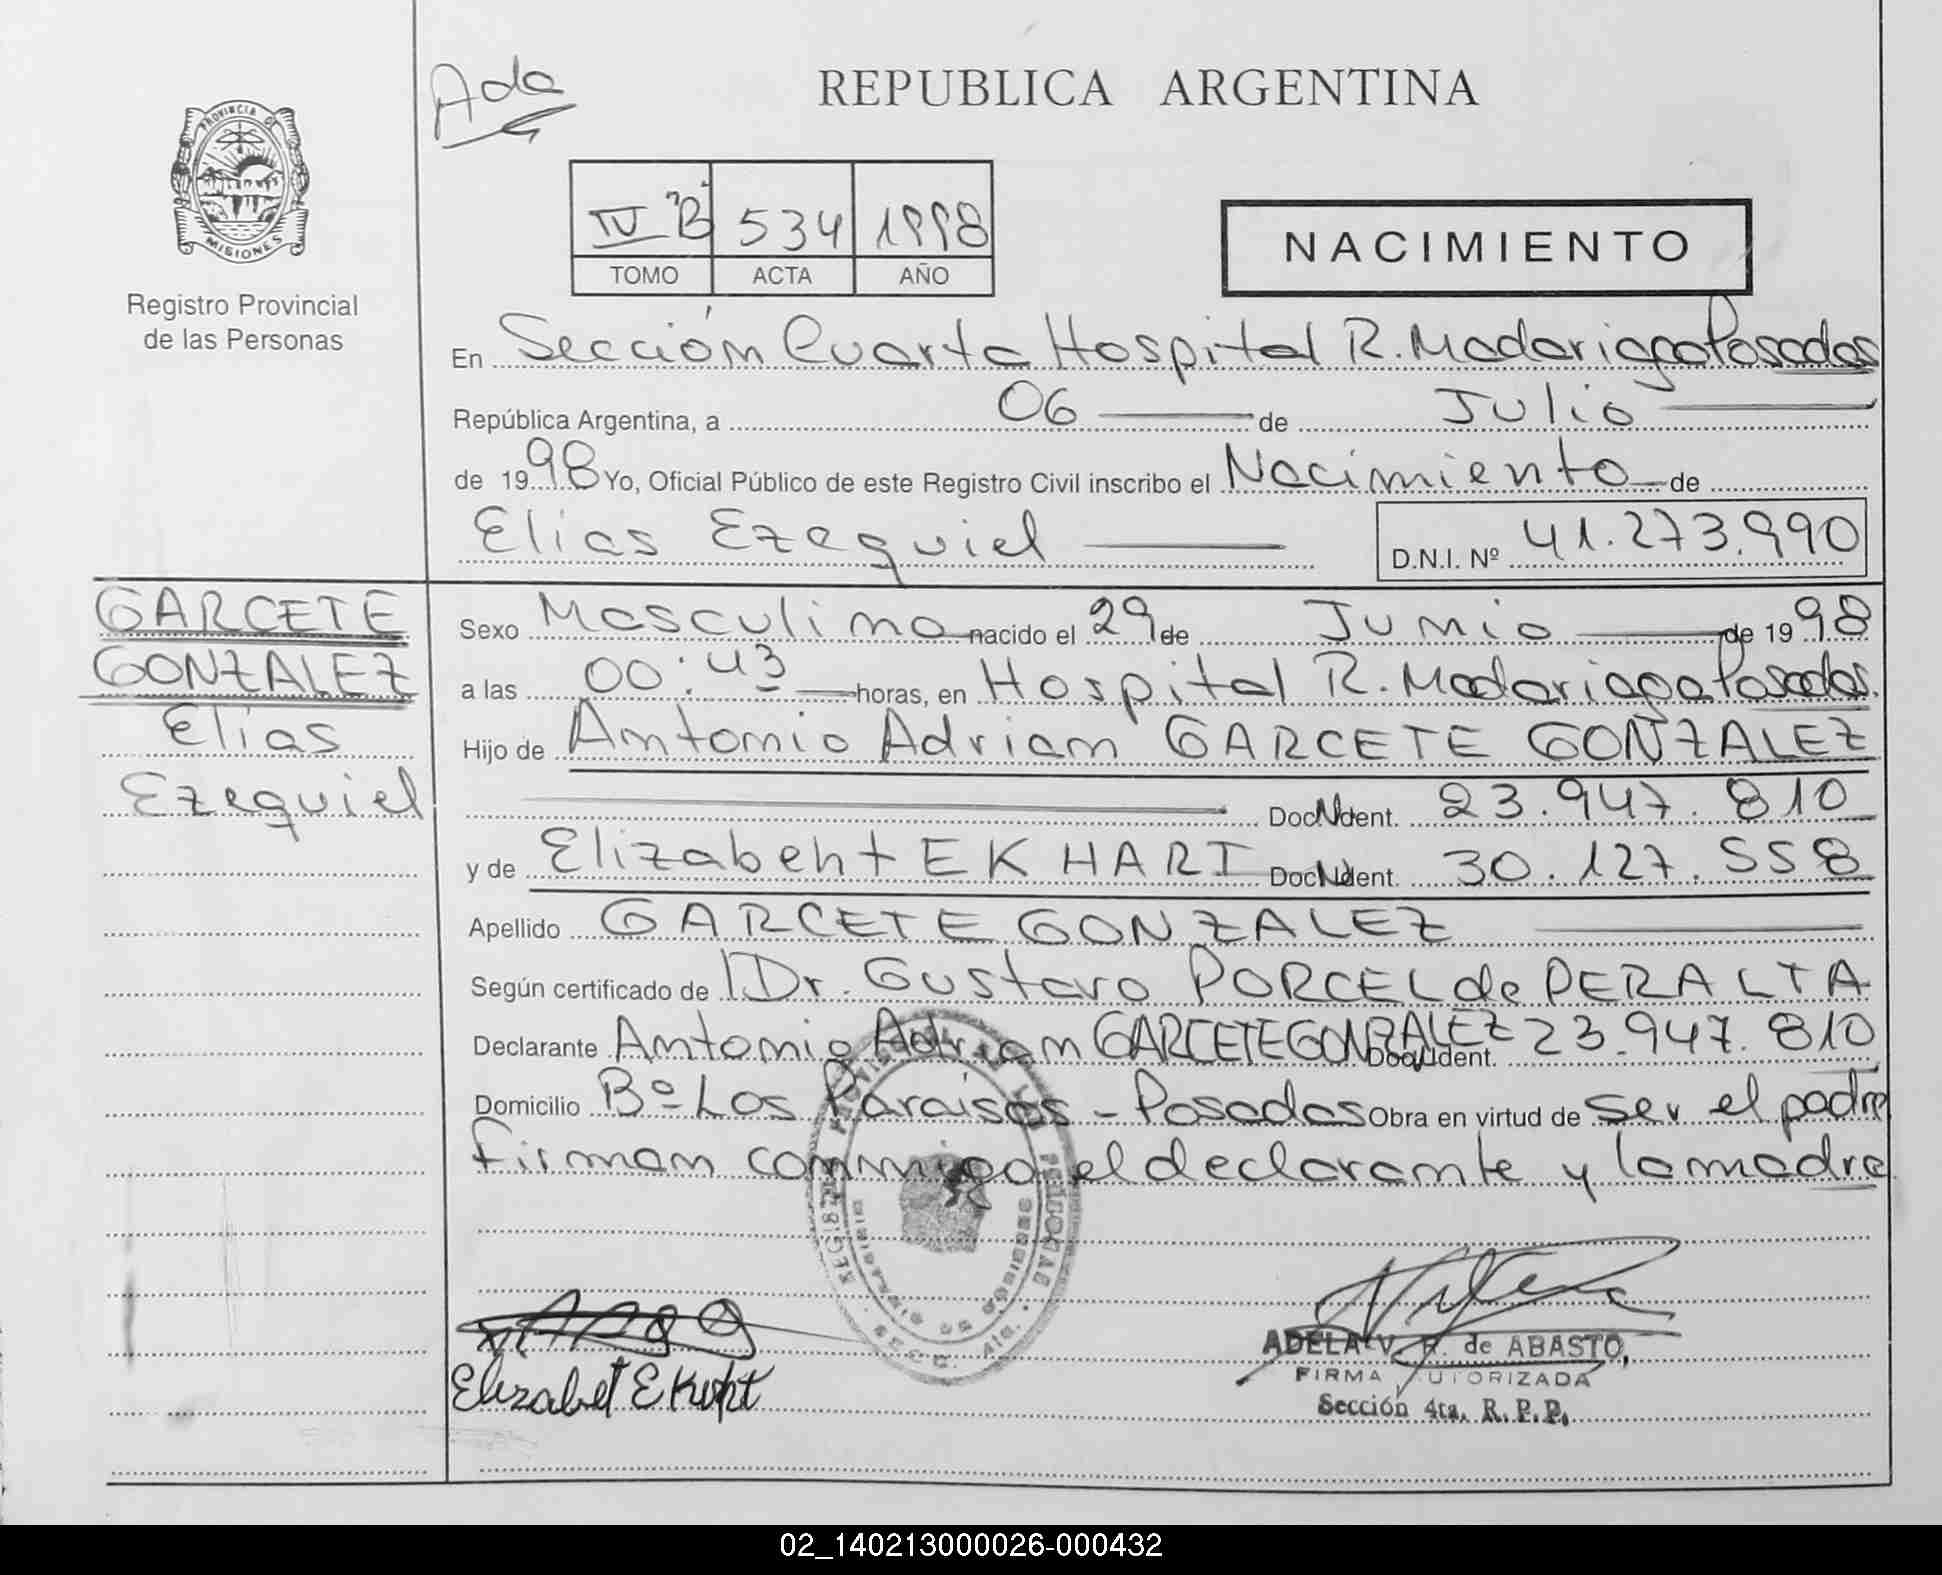 Ada
REPUBLICA ARGENTINA
PROVINCIA DE
MISIONES
Registro Provincial
de las Personas
IV "B" 534 1998
TOMO ACTA AÑO
NACIMIENTO
En Sección Cuarta Hospital R. Madariaga Posadas
República Argentina, a 06 de Julio
de 1998 Yo, Oficial Público de este Registro Civil inscribo el Nacimiento de
Elías Ezequiel
D.N.I. Nº 41.273.990
GARCETE
GONZALEZ
Elías
Ezequiel
Sexo Masculino nacido el 29 de Junio de 1998
a las 00:43 horas, en Hospital R. Madariaga Posadas.
Hijo de Antonio Adrian GARCETE GONZALEZ
Doc. Ident. 23.947.810
y de Elizabeht EKHART Doc. Ident. 30.127.558
Apellido GARCETE GONZALEZ
Según certificado de Dr. Gustavo PORCEL de PERALTA
Declarante Antonio Adrian GARCETE GONZALEZ Doc. Ident. 23.947.810
Domicilio Bº Los Paraísos - Posadas Obra en virtud de ser el padre
firman conmigo el declarante y la madre
Elizabet Ekhart
ADELA V. de ABASTO,
FIRMA AUTORIZADA
Sección 4ta. R.P.P.
02_140213000026-000432